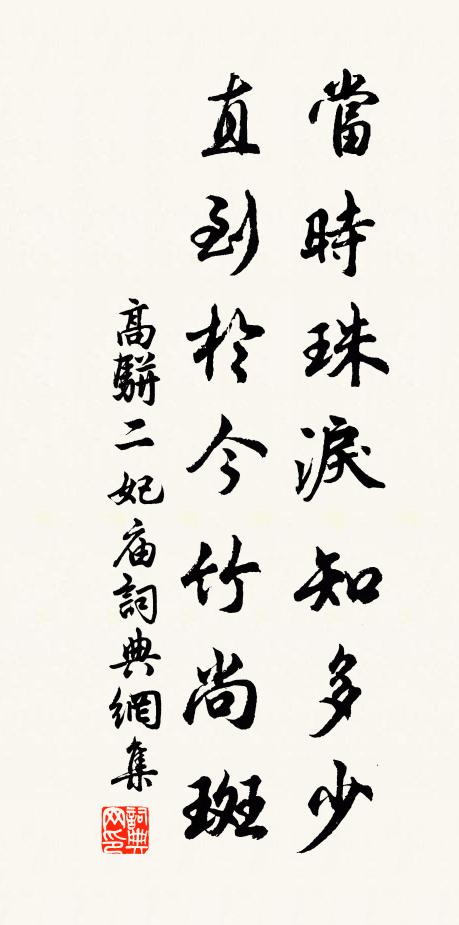 當時珠淚知多少
直到於今竹尚斑
高駢二妃庙詞典網集
詞典网印